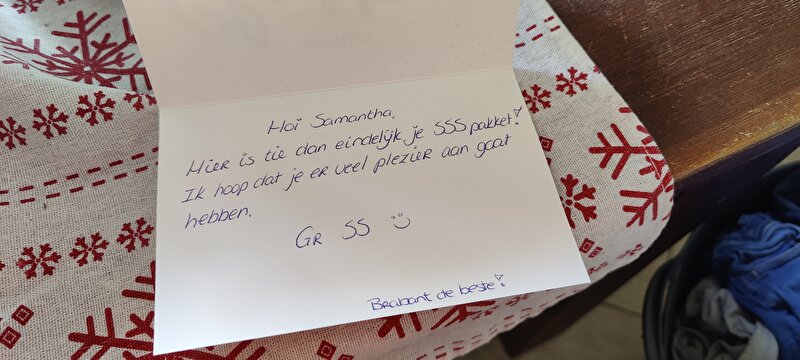 Hoi Samantha,
Hier is tie dan eindelijk, je SSS pakket!
Ik hoop dat je er veel plezier aan gaat
hebben.
Gr SS
Brabant de beste!